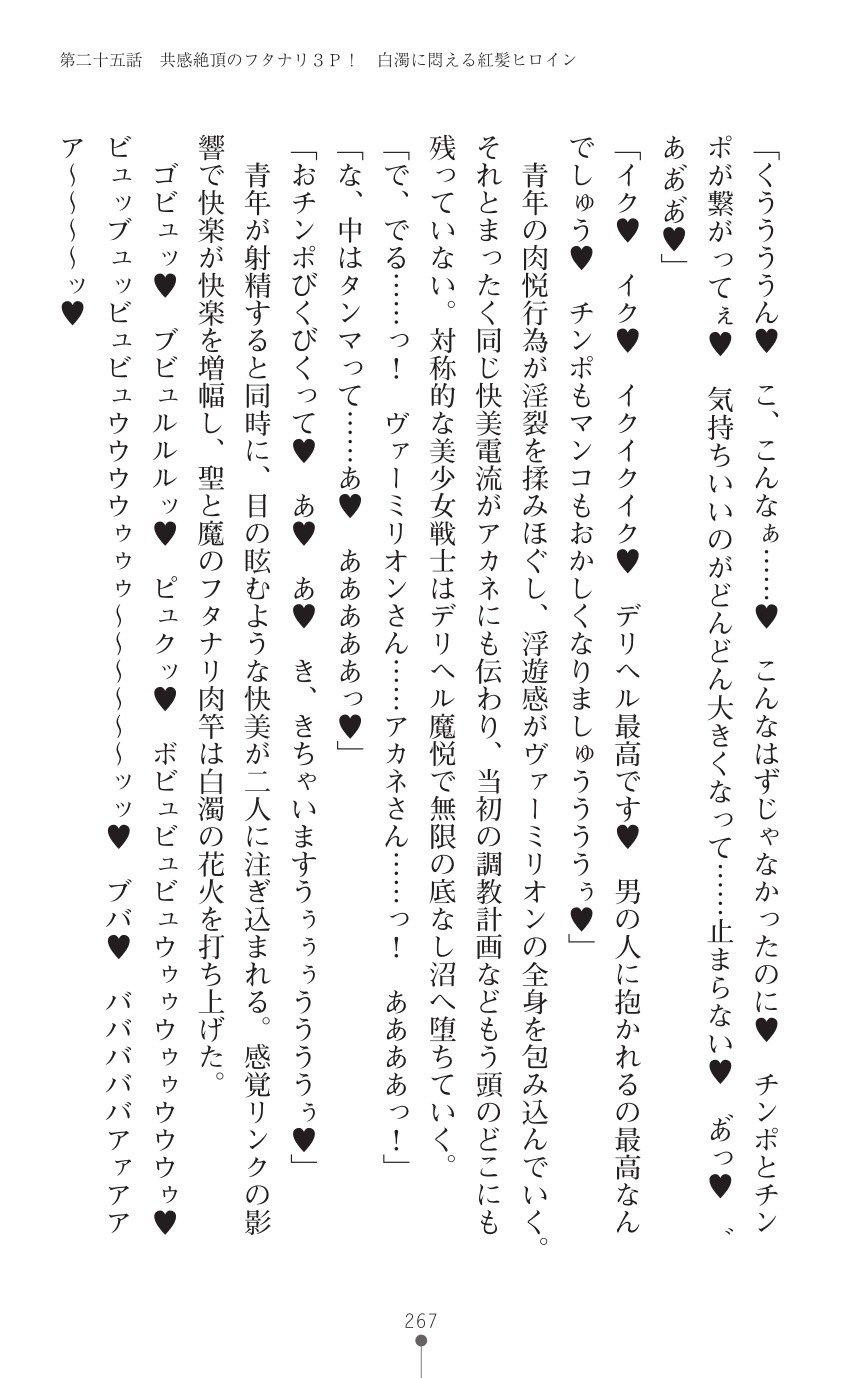 第二十五話　共感絶頂のフタナリ３Ｐ！　白濁に悶える紅髪ヒロイン
「くうううん♥　こ、こんなぁ……♥　こんなはずじゃなかったのに♥　チンポとチン
ポが繋がってぇ♥　気持ちいいのがどんどん大きくなって……止まらない♥　あ゛っ♥　゛
あ゛あ゛♥」
「イク♥　イク♥　イクイクイク♥　デリヘル最高です♥　男の人に抱かれるの最高なん
でしゅう♥　チンポもマンコもおかしくなりましゅうううぅ♥」
　青年の肉悦行為が淫裂を揉みほぐし、浮遊感がヴァーミリオンの全身を包み込んでいく。
それとまったく同じ快美電流がアカネにも伝わり、当初の調教計画などもう頭のどこにも
残っていない。対称的な美少女戦士はデリヘル魔悦で無限の底なし沼へ堕ちていく。
「で、でる……っ！　ヴァーミリオンさん……アカネさん……っ！　ああああっ！」
「な、中はタンマって……あ♥　あああああっ♥」
「おチンポびくびくって♥　あ♥　あ♥　き、きちゃいますうぅぅぅうううぅ♥」
　青年が射精すると同時に、目の眩むような快美が二人に注ぎ込まれる。感覚リンクの影
響で快楽が快楽を増幅し、聖と魔のフタナリ肉竿は白濁の花火を打ち上げた。
　ゴビュッ♥　ブビュルルルッ♥　ピュクッ♥　ボビュビュビュウゥゥウゥゥウウウゥ♥
ビュッブュッビュビュウウウウゥゥゥ～～～～～～ッッ♥　ブバ♥　バババババアァアア
ア～～～～ッ♥
267